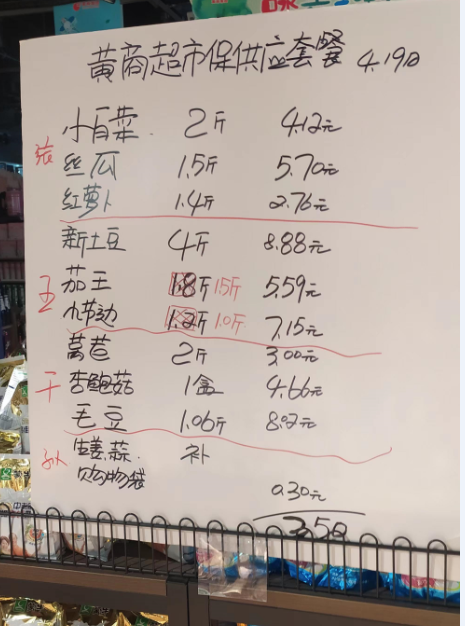 黄商超市保供应套餐 4.19日
小白菜. 2斤 4.12元
张
丝瓜 1.5斤 5.70元
红萝卜 1.4斤 2.76元
新土豆 4斤 8.88元
王
茄王 1.8斤 1.5斤 5.59元
1.2斤 1.0斤 7.15元
莴苣 2斤 3.00元
干
杏鲍菇 1盒 4.66元
毛豆 1.06斤 8.02元
生姜.蒜. 补
购物袋
0.30元